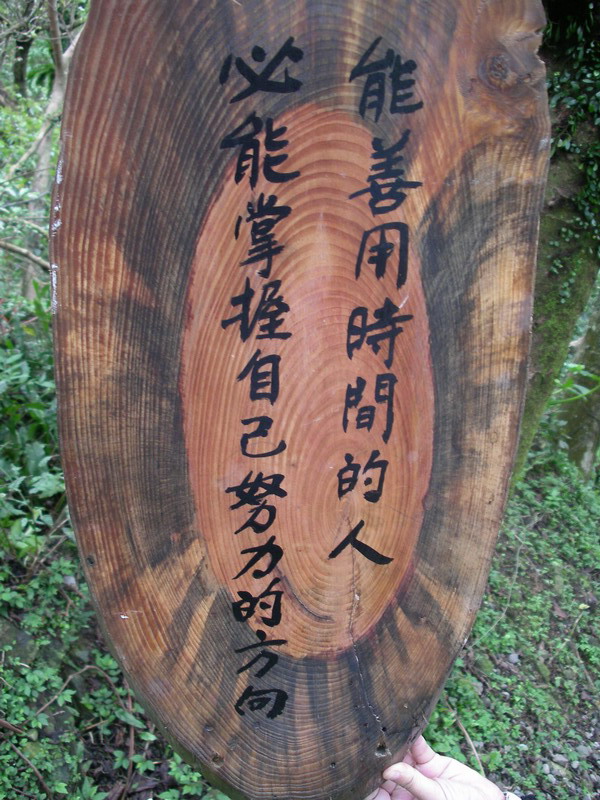 能善用時間的人
必能掌握自己努力的方向